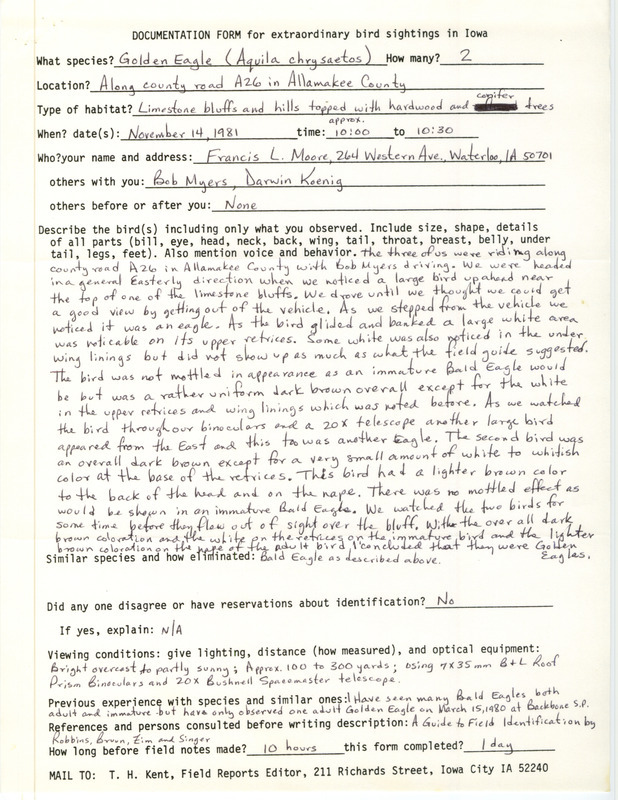 DOCUMENTATION FORM for extraordinary bird sightings in Iowa
What species? Golden Eagle (Aquila chrysaetos) How many? 2
Location? Along county road A26 in Allamakee County
Type of habitat? Limestone bluffs and hills topped with hardwood and conifer trees
When? date(s): November 14, 1981 time: approx. 10:00 to 10:30
Who? your name and address: Francis L. Moore, 264 Western Ave., Waterloo, IA 50701
others with you: Bob Myers, Darwin Koenig
others before or after you: None
Describe the bird(s) including only what you observed. Include size, shape, details
of all parts (bill, eye, head, neck, back, wing, tail, throat, breast, belly, under
tail, legs, feet). Also mention voice and behavior. The three of us were riding along
county road A26 in Allamakee County with Bob Myers driving. We were headed
in a general Easterly direction when we noticed a large bird up ahead near
the top of one of the limestone bluffs. We drove until we thought we could get
a good view by getting out of the vehicle. As we stepped from the vehicle we
noticed it was an eagle. As the bird glided and banked a large white area
was noticable on its upper retrices. Some white was also noticed in the under
wing linings but did not show up as much as what the field guide suggested.
The bird was not mottled in appearance as an immature Bald Eagle would
be but was a rather uniform dark brown overall except for the white
in the upper retrices and wing linings which was noted before. As we watched
the bird through our binoculars and a 20x telescope another large bird
appeared from the East and this to was another Eagle. The second bird was
an overall dark brown except for a very small amount of white to whitish
color at the base of the retrices. This bird had a lighter brown color
to the back of the head and on the nape. There was no mottled effect as
would be shown in an immature Bald Eagle. We watched the two birds for
some time before they flew out of sight over the bluff. With the over all dark
brown coloration and the white on the retrices on the immature bird and the lighter
brown coloration on the nape of the adult bird I concluded that they were Golden
Eagles.
Similar species and how eliminated: Bald Eagle as described above.
Did any one disagree or have reservations about identification? No
If yes, explain: N/A
Viewing conditions: give lighting, distance (how measured), and optical equipment:
Bright overcast to partly sunny; Approx. 100 to 300 yards; using 7x35mm B+L Roof
Prism Binoculars and 20x Bushnell Spacemaster telescope.
Previous experience with species and similar ones: I Have seen many Bald Eagles both
adult and immature but have only observed one adult Golden Eagle on March 15, 1980 at Backbone S.P.
References and persons consulted before writing description: A Guide to Field Identification by
Robbins, Bruun, Zim and Singer
How long before field notes made? 10 hours this form completed? 1 day
MAIL TO: T. H. Kent, Field Reports Editor, 211 Richards Street, Iowa City IA 52240